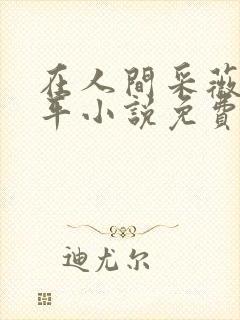 在人間采薇
年小説免費
迪尤尔